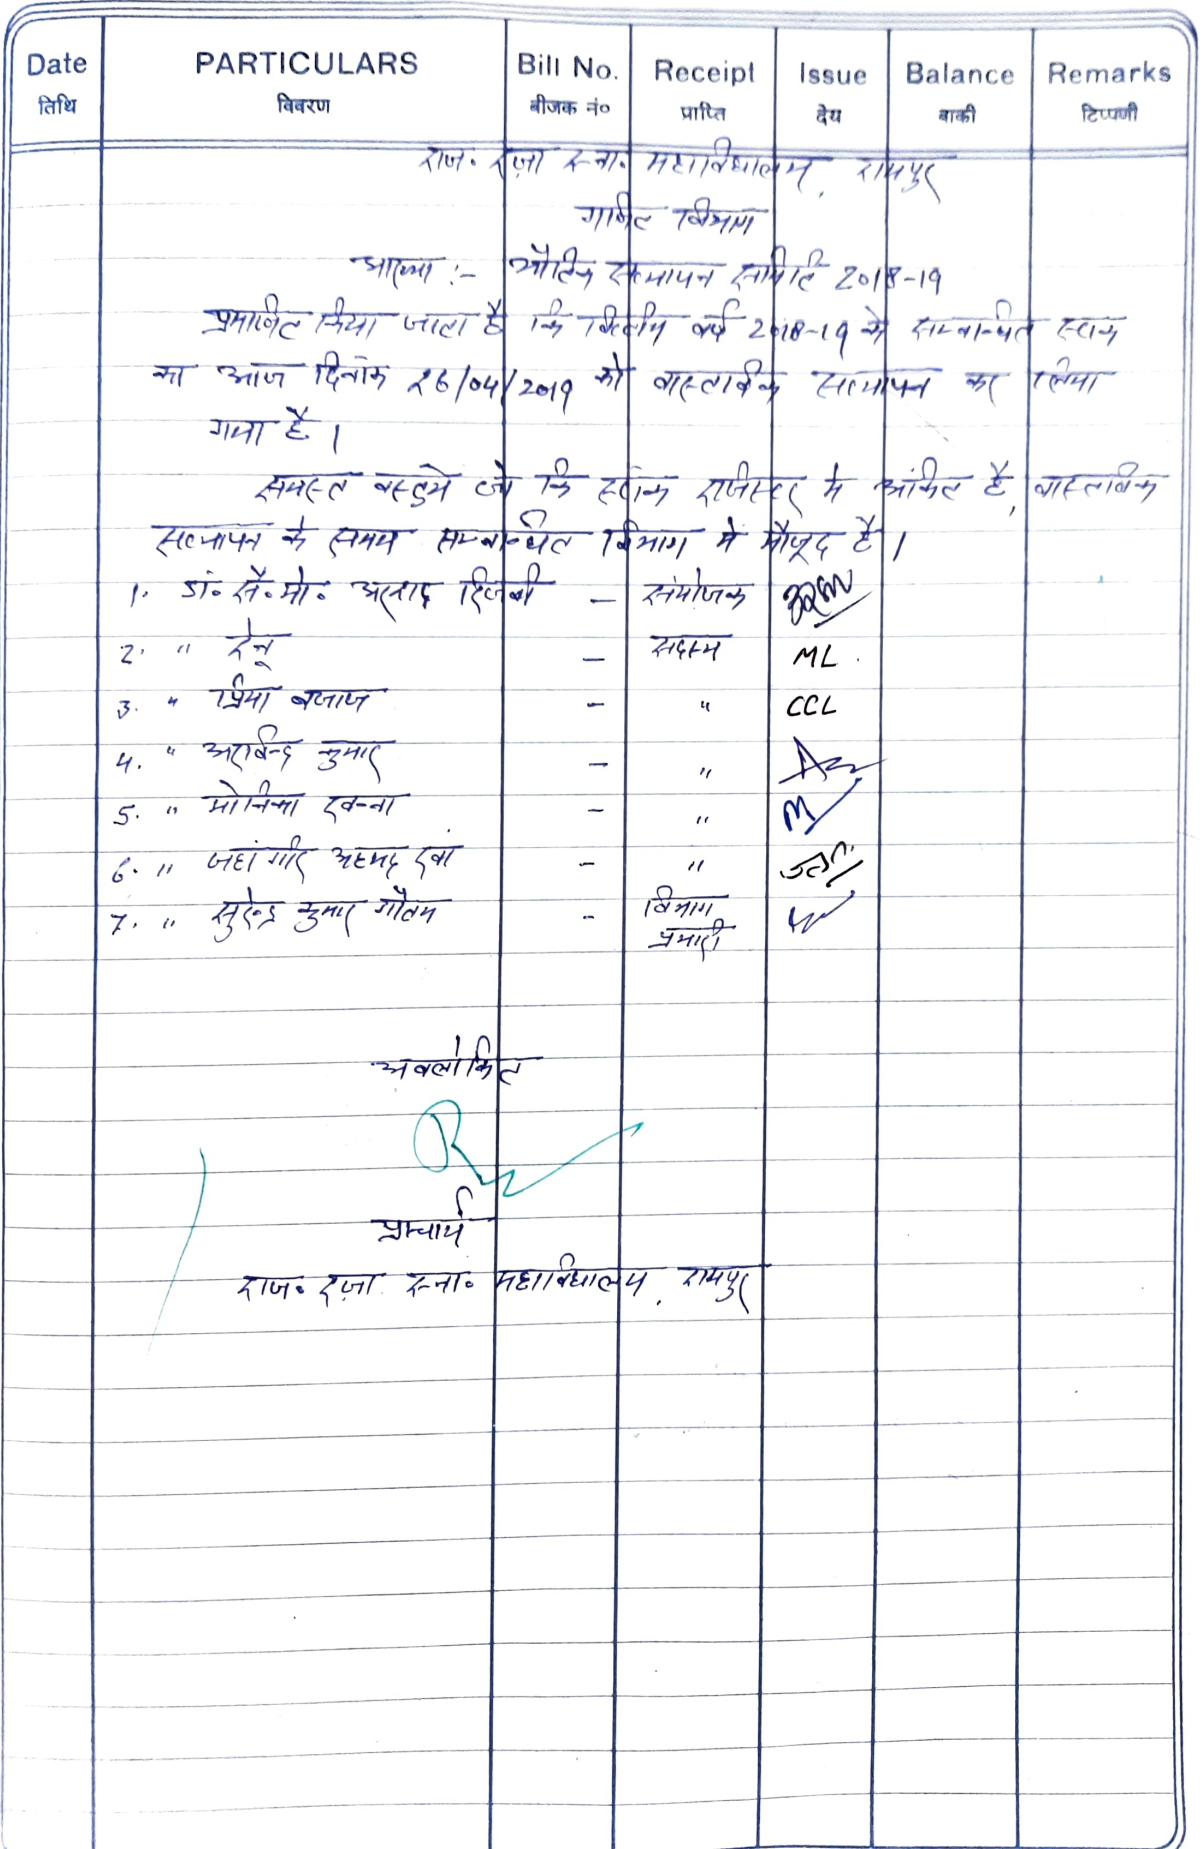 Date PARTICULARS Bill No. Receipt Issue Balance Remarks
तिथि विवरण बीजक नं० प्राप्ति देय बाकी टिप्पणी
राज. रज़ा स्ना. महाविद्यालय, रामपुर
गणित विभाग
आख्या :- भौतिक सत्यापन समिति 2018-19
प्रमाणित किया जाता है कि वित्तीय वर्ष 2018-19 से सम्बन्धित स्टाक
का आज दिनांक 26/04/2019 को वास्तविक सत्यापन कर लिया
गया है।
समस्त वस्तुयें जो कि स्टॉक रजिस्टर में अंकित है, वास्तविक
सत्यापन के समय सम्बन्धित विभाग में मौजूद है।
1. डॉ. सै. मो. अरशद रिज़वी - संयोजक
2. " रेनू - सदस्य ML.
3. " प्रिया बजाज - " CCL
4. " अरविन्द कुमार - "
5. " मोनिका खन्ना - " M
6. " जहांगीर अहमद खां - "
7. " सुरेन्द्र कुमार गौतम - विभाग
प्रभारी
अवलोकित
प्राचार्य
राज. रज़ा स्ना. महाविद्यालय, रामपुर